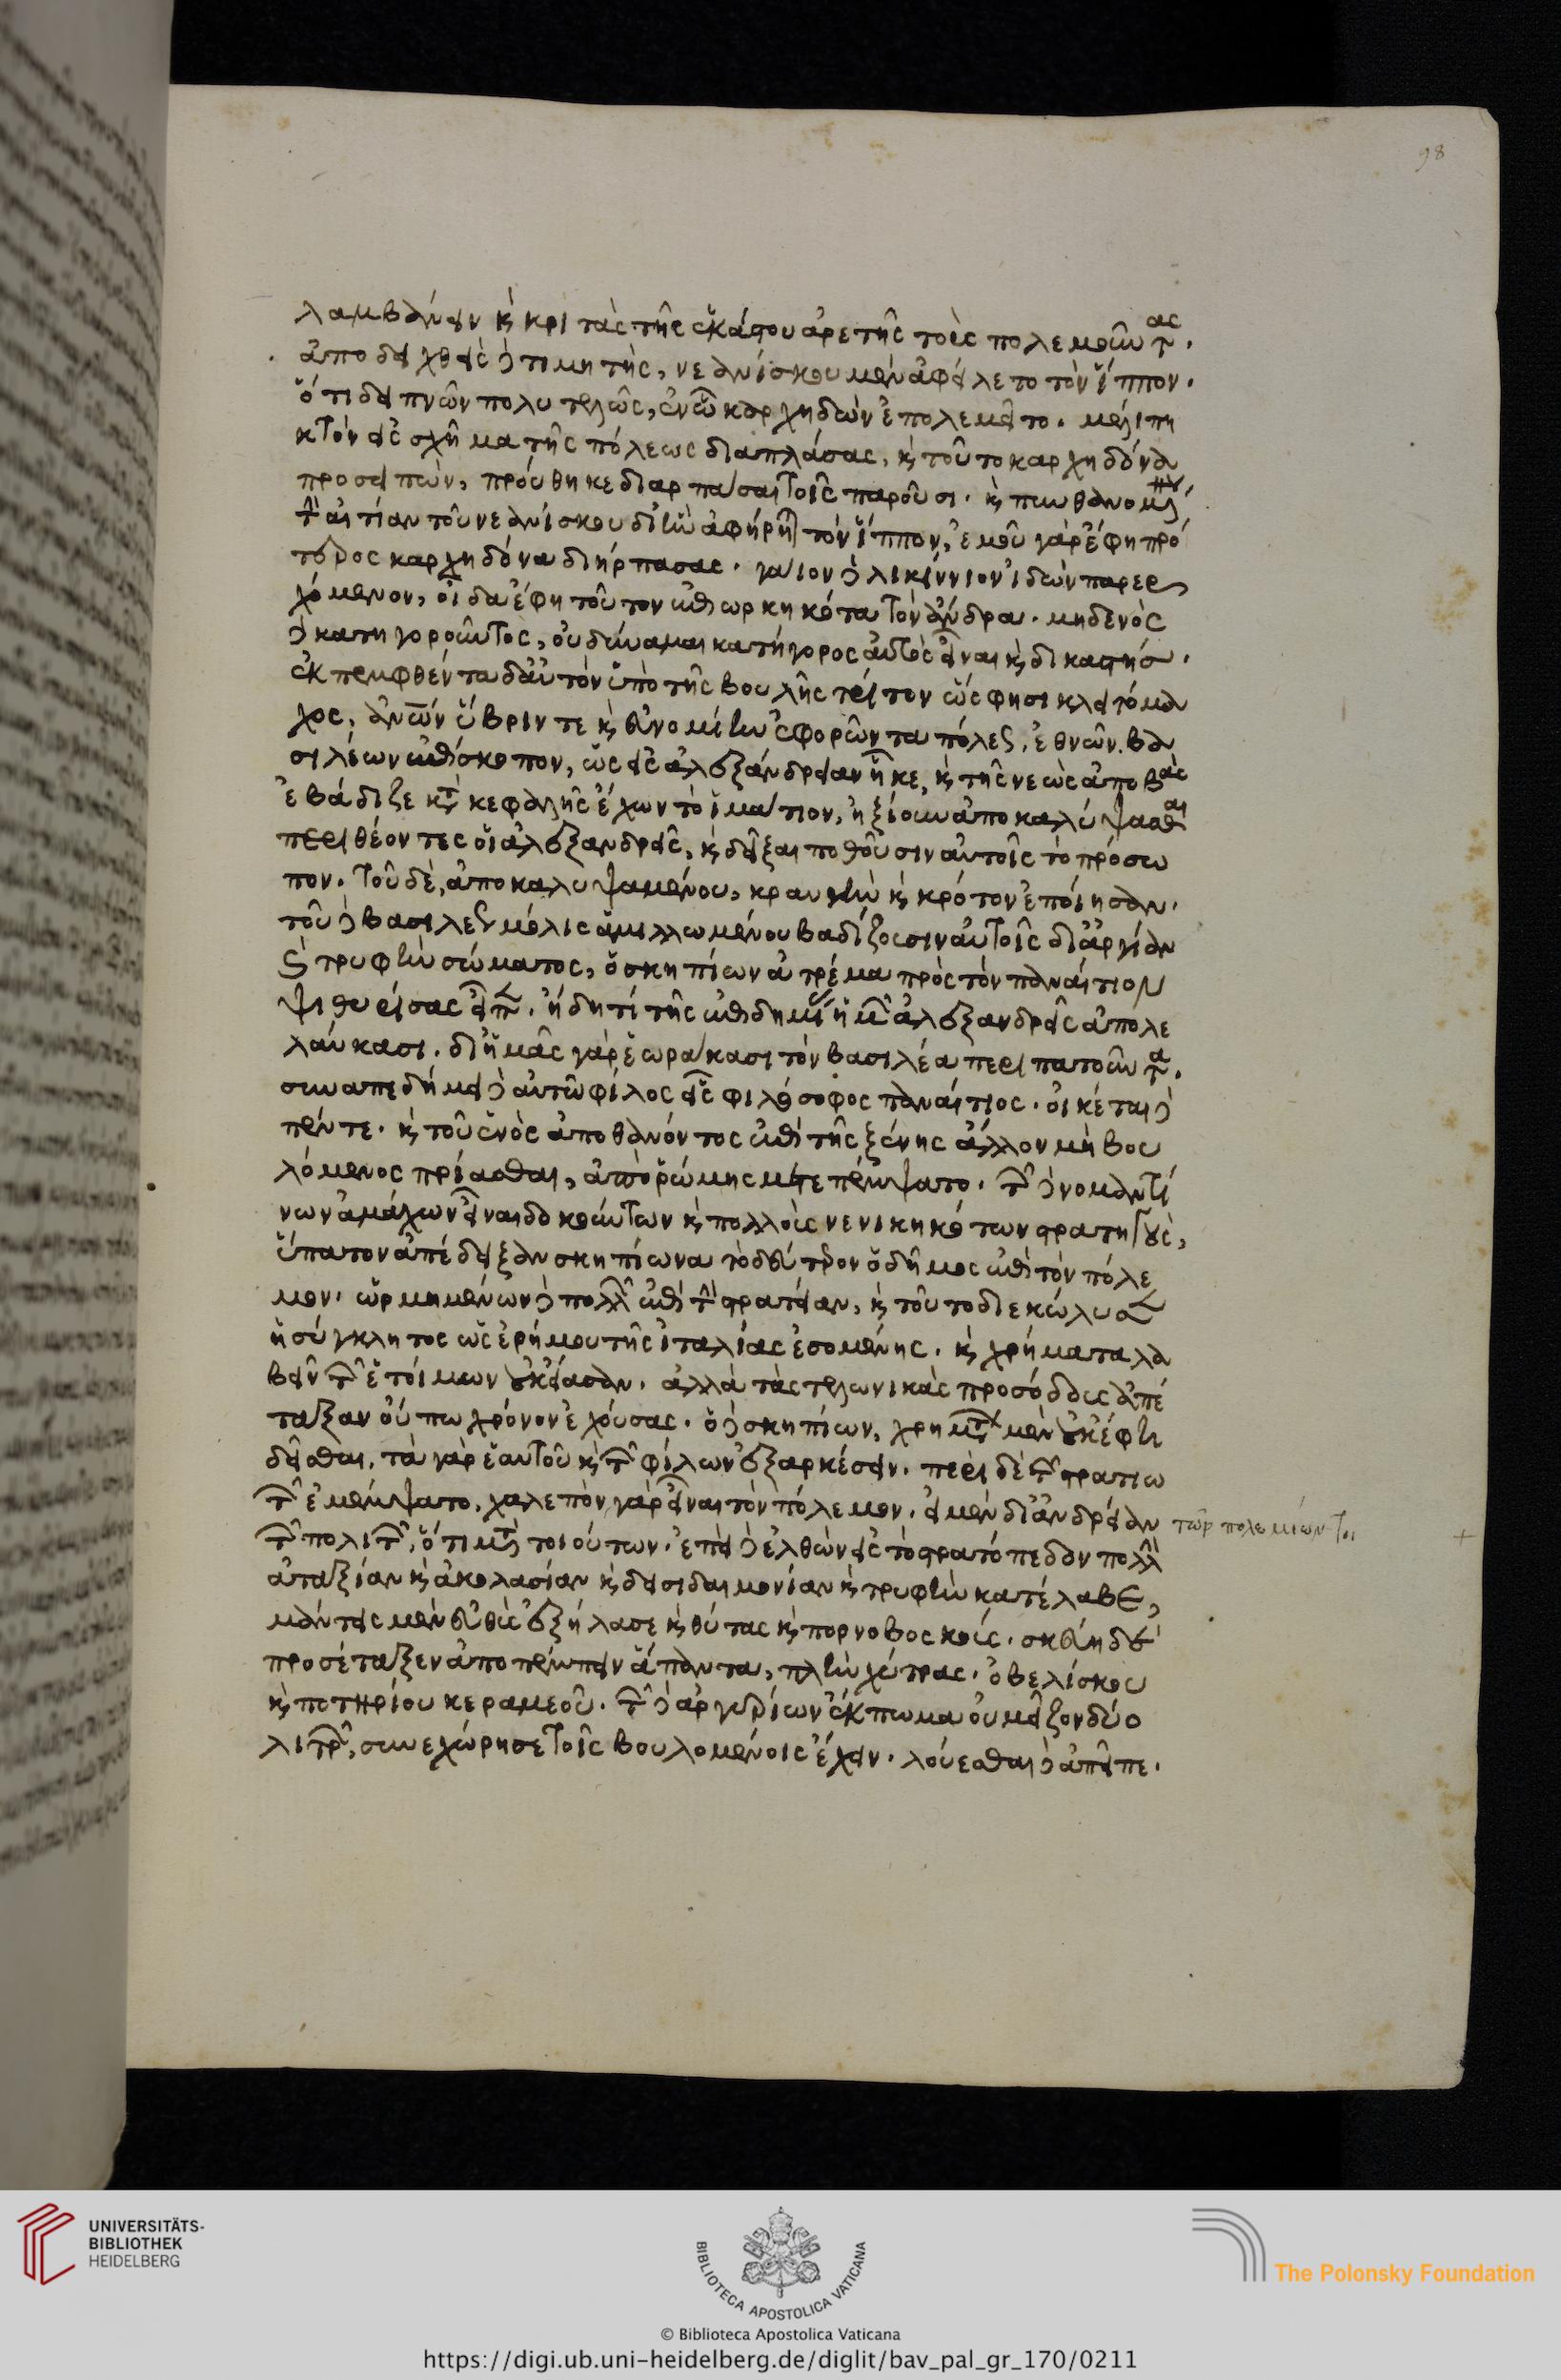 98
λαμβάνειν ϗ κριτὰς τῆς ἑκάστου ἀρετῆς τοὺς πολεμοῦντας.
ἀποδειχθεὶς δὲ τιμητὴς, νεανίσκου μὲν ἀφείλετο τὸν ἵππον.
ὅτι δειπνῶν πολυτελῶς, ἐν ᾧ καρχηδὼν ἐπολεμεῖτο. μελίπη
κτον εἰς σχῆμα τῆς πόλεως διαπλάσας, ϗ τοῦτο καρχηδόνα
προσειπὼν, προύθηκε διαρπάσαι τοῖς παροῦσι. ϗ πυνθανομένου
τὴν αἰτίαν τοῦ νεανίσκου δι' ἣν ἀφήρηται τὸν ἵππον, ἐμοῦ γὰρ ἔφη πρό
τερος καρχηδόνα διήρπασας. γάιον δὲ λικίννιον ἰδὼν παρερ
χόμενον, οἶδα ἔφη τοῦτον ἐπιωρκηκότα τὸν ἄνδρα. μηδενὸς
δὲ κατηγοροῦντος, οὐ δύναμαι κατήγορος αὐτὸς εἶναι ϗ δικαστής.
ἐκπεμφθέντα δ' αὐτὸν ὑπὸ τῆς βουλῆς τρίτον ὥς φησι κλειτόμα
χος, ἀνθρώπων ὕβριν τε ϗ εὐνομίην ἐφορῶντα πόλεων, ἐθνῶν, βα
σιλέων ἐπίσκοπον, ὡς εἰς ἀλεξάνδρειαν ἧκε, ϗ τῆς νεὼς ἀποβὰς
ἐβάδιζε κατὰ κεφαλῆς ἔχων τὸ ἱμάτιον, ἠξίουν ἀποκαλύψασθαι
περιθέοντες οἱ ἀλεξανδρεῖς, ϗ δεῖξαι ποθοῦσιν αὐτοῖς τὸ πρόσω
πον. τοῦ δὲ, ἀποκαλυψαμένου, κραυγὴν ϗ κρότον ἐποίησαν.
τοῦ δὲ βασιλέως μόλις ἁμιλλωμένου βαδίζουσιν αὐτοῖς δι' ἀργίαν
ϗ τρυφὴν σώματος, ὁ σκηπίων ἀτρέμα πρὸς τὸν παναίτιον
ψιθυρίσας εἶπεν. ἤδη τί τῆς ἐπιδημίας ἡμῶν ἀλεξανδρεῖς ἀπολε
λαύκασι. δι' ἡμᾶς γὰρ ἑωράκασι τὸν βασιλέα περιπατοῦντα.
συναπεδήμει δὲ αὐτῷ φίλος εἷς φιλόσοφος παναίτιος. οἰκέται δὲ
πέντε. ϗ τοῦ ἑνὸς ἀποθανόντος ἐπὶ τῆς ξένης ἄλλον μὴ βου
λόμενος πρίασθαι, ἀπὸ ῥώμης μετεπέμψατο. τῶν δὲ νομαντί
νων ἀμάχων εἶναι δοκούντων ϗ πολλοὺς νενικηκότων στρατηγούς,
ὕπατον ἀπέδειξαν σκηπίωνα τὸ δεύτερον ὁ δῆμος ἐπὶ τὸν πόλε
μον. ὡρμημένων δὲ πολλῶν ἐπὶ τὴν στρατείαν, ϗ τοῦτο διεκώλυσεν
ἡ σύγκλητος ὡς ἐρήμου τῆς ἰταλίας ἐσομένης. ϗ χρήματα λα
βεῖν τῶν ἑτοίμων οὐκ εἴασαν. ἀλλὰ τὰς τελωνικὰς προσόδους ἀπέ
ταξαν οὔπω χρόνον ἐχούσας. ὁ δὲ σκηπίων, χρημάτων μὲν οὐκ ἔφη
δεῖσθαι, τὰ γὰρ ἑαυτοῦ ϗ τῶν φίλων ἐξαρκέσειν. περὶ δὲ τῶν στρατιω
τῶν ἐμέμψατο, χαλεπὸν γὰρ εἶναι τὸν πόλεμον. εἰ μὲν δι' ἀνδρείαν
τῶν πολιτῶν, ὅτι μετὰ τοιούτων. ἐπεὶ δὲ ἐλθὼν εἰς τὸ στρατόπεδον πολλὴν
ἀταξίαν ϗ ἀκολασίαν ϗ δεισιδαιμονίαν ϗ τρυφὴν κατέλαβε,
μάντεις μὲν εὐθὺς ἐξήλασε ϗ θύτας ϗ πορνοβοσκούς. σκεύη δὲ
προσέταξεν ἀποπέμπειν ἅπαντα, πλὴν χύτρας. ὀβελίσκου
ϗ ποτηρίου κεραμεοῦ. τῶν δὲ ἀργυρίων ἔκπωμα οὐ μεῖζον δύο
λιτρῶν, συνεχώρησε τοῖς βουλομένοις ἔχειν. λούεσθαι δὲ ἀπεῖπε.
τῶν πολεμίων
UNIVERSITÄTS-
BIBLIOTHEK
HEIDELBERG
BIBLIOTECA APOSTOLICA VATICANA
The Polonsky Foundation
© Biblioteca Apostolica Vaticana
https://digi.ub.uni-heidelberg.de/diglit/bav_pal_gr_170/0211